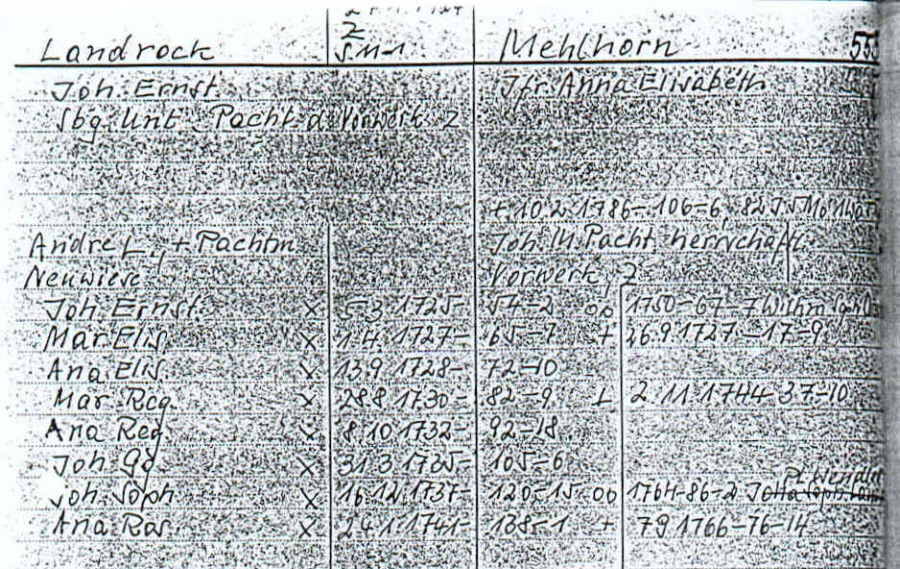 Landrock 2 S.11-1 Mehlhorn
Joh. Ernst Jfr. Anna Elisabeth
Sbg. Unt. Pacht. d. Vorwerk 2
+ 10.2.1786-106-6, 82 J.
Andre L., + Pachtm Joh. M. Pacht herrschaftl.
Neuwiese Vorwerk, 2
Joh. Ernst. x 5.3.1725- 54-2 oo 1750-67-7
Mar Elis x 1.4.1727- 65-7 + 26.9.1727-17-9
Ana Elis. x 13.9.1728- 72-10
Mar. Reg. x 28.8.1730- 82-9 + 2.11.1744 37-10
Ana Reg. x 8.10.1732- 92-18
Joh. Gd. x 31.3.1735- 105-6
Joh. Soph x 16.12.1737- 120-15 oo 1764-86-2
Ana Ros. x 24.1.1741- 138-1 + 7.9.1766-76-14